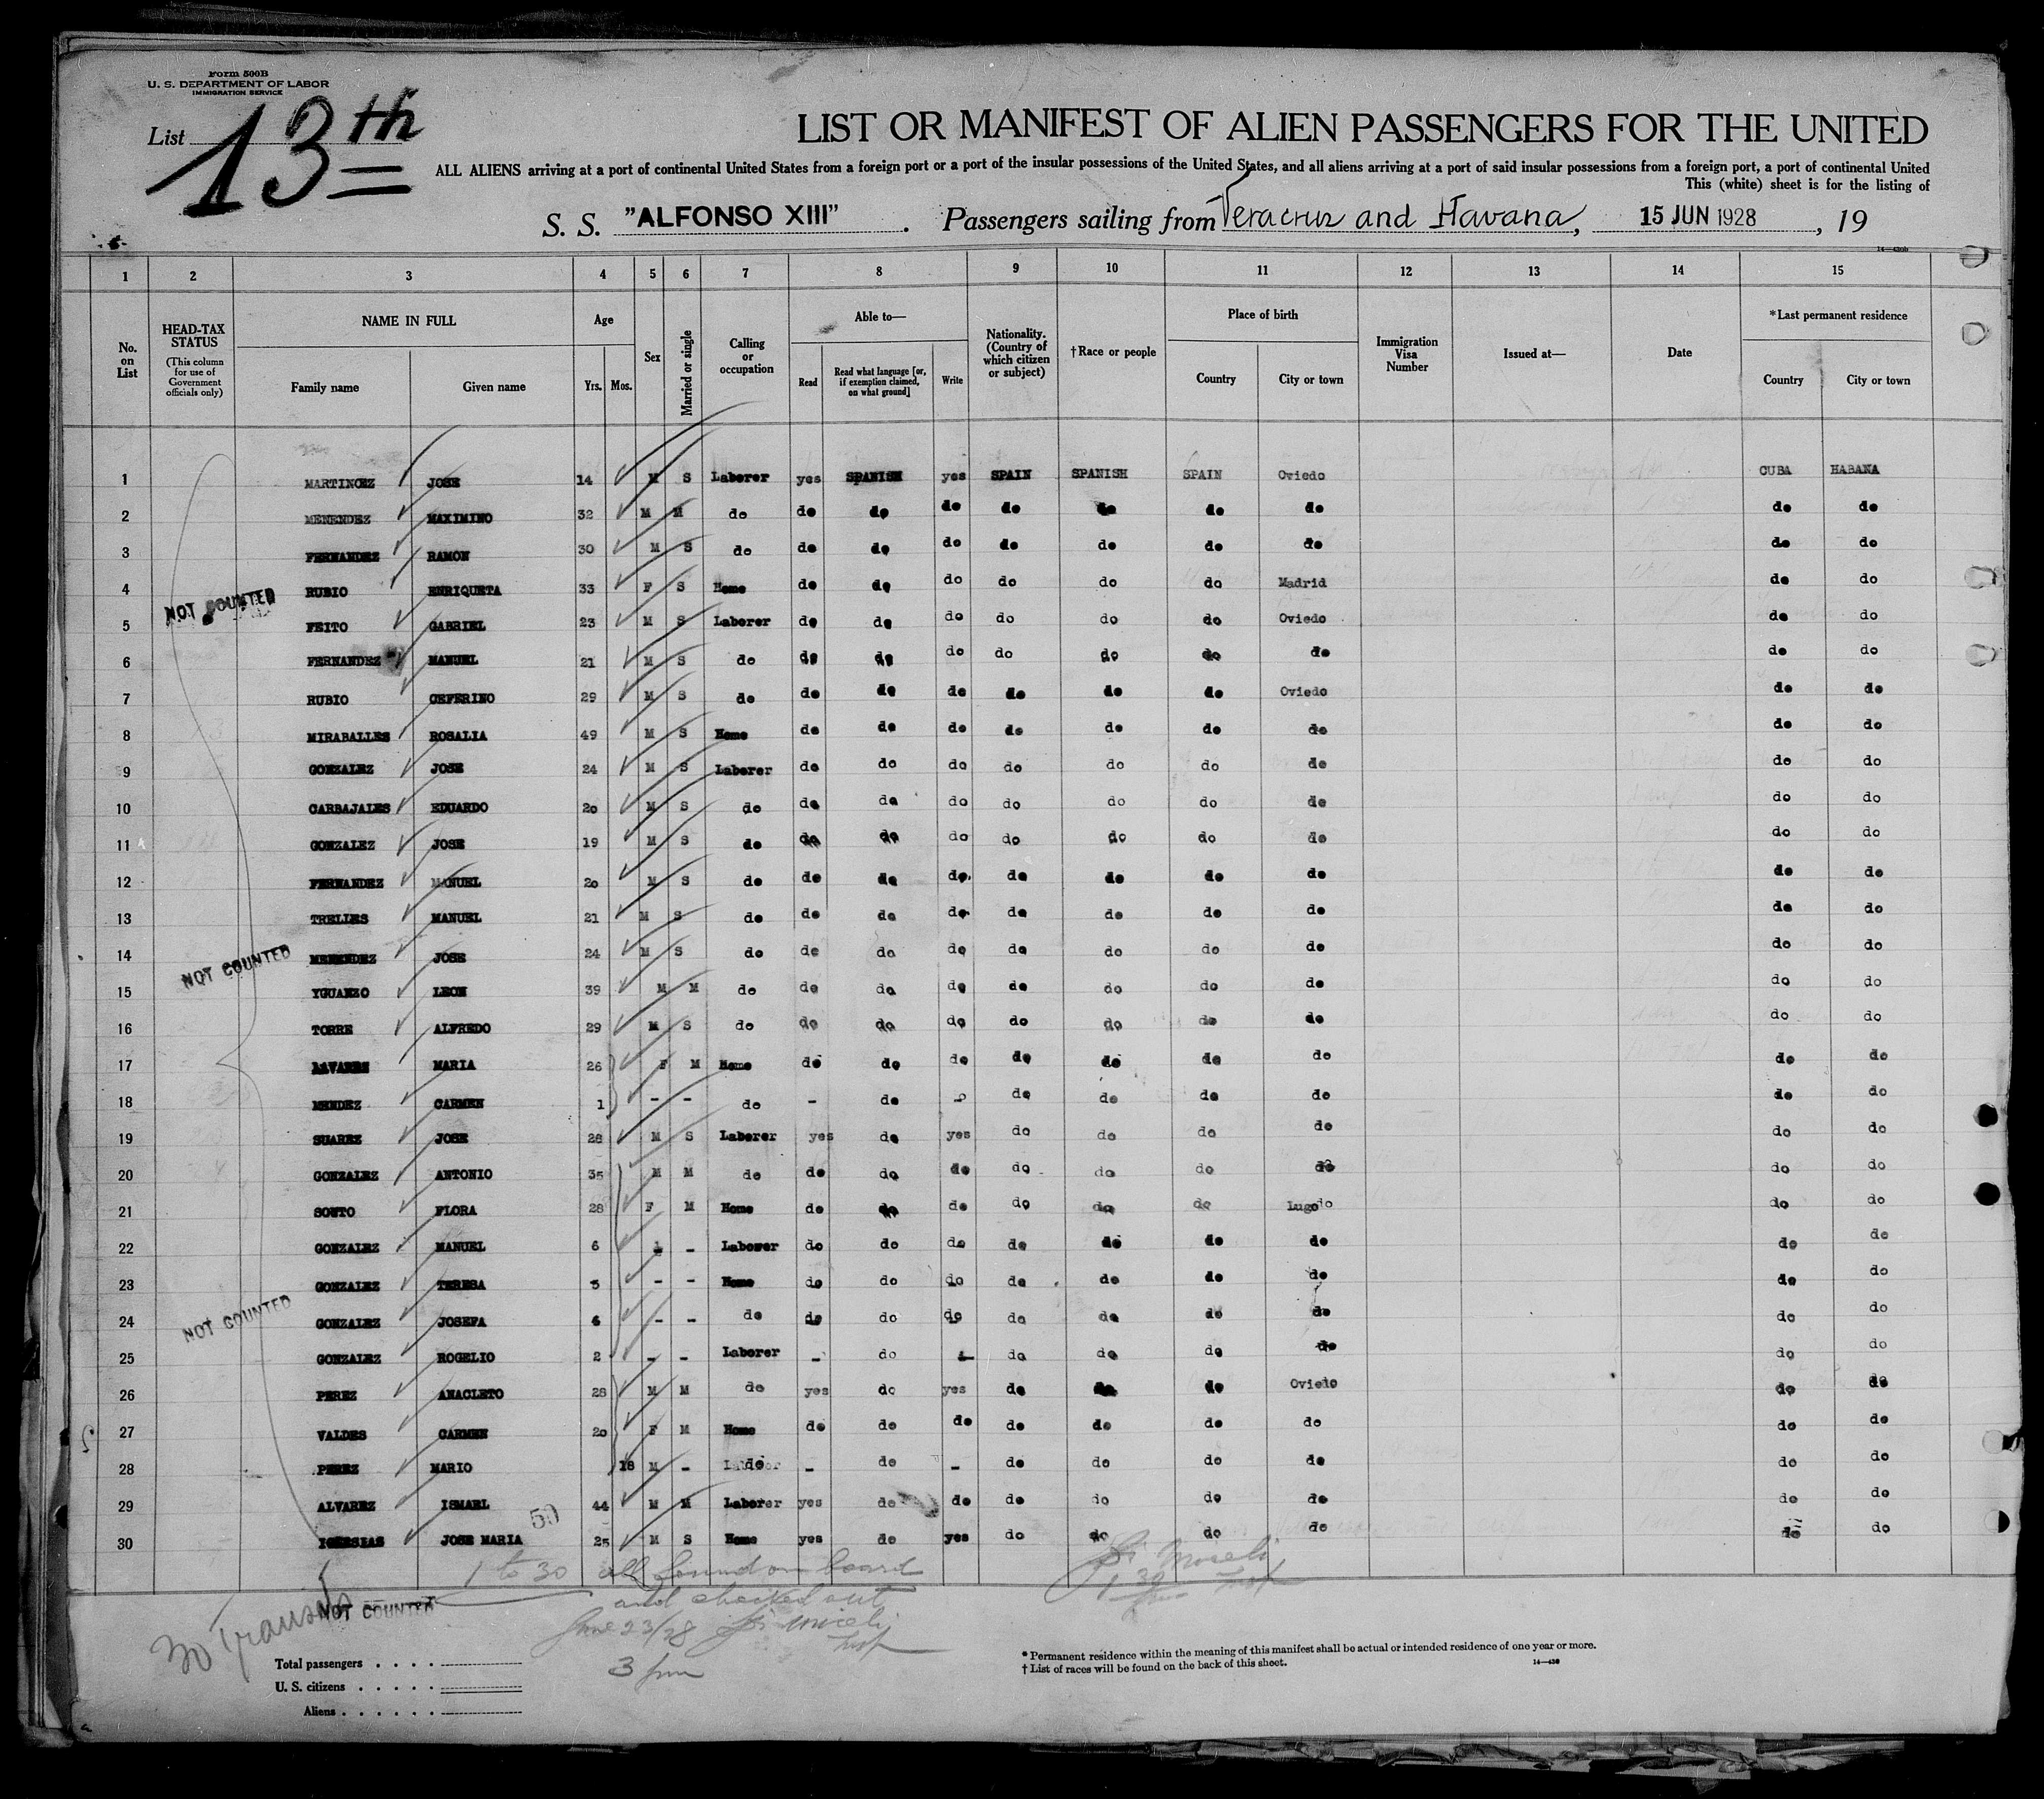 Form 500B
U. S. DEPARTMENT OF LABOR
IMMIGRATION SERVICE
List 13th
LIST OR MANIFEST OF ALIEN PASSENGERS FOR THE UNITED
ALL ALIENS arriving at a port of continental United States from a foreign port or a port of the insular possessions of the United States, and all aliens arriving at a port of said insular possessions from a foreign port, a port of continental United
This (white) sheet is for the listing of
S. S. "ALFONSO XIII" . Passengers sailing from Veracruz and Havana, 15 JUN 1928, 19
14—430b
1 2 3 4 5 6 7 8 9 10 11 12 13 14 15
No. on List
HEAD-TAX STATUS (This column for use of Government officials only)
NAME IN FULL Family name Given name
Age Yrs. Mos.
Sex
Married or single
Calling or occupation
Able to— Read Read what language [or, if exemption claimed, on what ground] Write
Nationality. (Country of which citizen or subject)
†Race or people
Place of birth Country City or town
Immigration Visa Number
Issued at—
Date
*Last permanent residence Country City or town
1 MARTINCEZ JOSE 14 M S Laborer yes SPANISH yes SPAIN SPANISH SPAIN Oviedo CUBA HABANA
2 MENENDEZ MAXIMINO 32 M M do do do do do do do do do do
3 FERNANDEZ RAMON 30 M S do do do do do do do do do do
4 RUBIO ENRIQUETA 33 F S Home do do do do do do Madrid do do
5 FEITO GABRIEL 23 M S Laborer do do do do do do Oviedo do do
6 FERNANDEZ MANUEL 21 M S do do do do do do do do do do
7 RUBIO CEFERINO 29 M S do do do do do do do Oviedo do do
8 MIRABALLES ROSALIA 49 M S Home do do do do do do do do do
9 GONZALEZ JOSE 24 M S Laborer do do do do do do do do do
10 CARBAJALES EDUARDO 20 M S do do do do do do do do do do
11 GONZALEZ JOSE 19 M S do do do do do do do do do do
12 FERNANDEZ MANUEL 20 M S do do do do do do do do do do
13 TRELLES MANUEL 21 M S do do do do do do do do do do
14 MENENDEZ JOSE 24 M S do do do do do do do do do do
15 YGUANZO LEON 39 M M do do do do do do do do do do
16 TORRE ALFREDO 29 M S do do do do do do do do do do
17 MARIA 26 F M Home do do do do do do do do do
18 MENDEZ CARMEN 1 - - do - do - do do do do do do
19 SUAREZ JOSE 28 M S Laborer yes do yes do do do do do do
20 GONZALEZ ANTONIO 35 M M do do do do do do do do do do
21 SOUTO FLORA 28 F M Home do do do do do do Lugo do do do
22 GONZALEZ MANUEL 6 - Laborer do do do do do do do do do
23 GONZALEZ TERESA 5 - - Home do do do do do do do do do
24 GONZALEZ JOSEFA - - do do do do do do do do do do
25 GONZALEZ ROGELIO 2 - - Laborer - do - do do do do do do
26 PEREZ ANACLETO 28 M M do yes do yes do do do Oviedo do do
27 VALDES CARMEN 20 F M Home do do do do do do do do do
28 PEREZ MARIO 18 M - do - do - do do do do do do
29 ALVAREZ ISMAEL 44 M M Laborer yes do do do do do do do do
30 IGLESIAS JOSE MARIA 25 M S Home yes do yes do do do do do do
NOT COUNTED
NOT COUNTED
NOT COUNTED
50
1 to 30 all found on board
and checked out
June 23/28
3 pm
NOT COUNTED
30 Transits
Total passengers
U. S. citizens
Aliens
* Permanent residence within the meaning of this manifest shall be actual or intended residence of one year or more.
† List of races will be found on the back of this sheet.
14—430